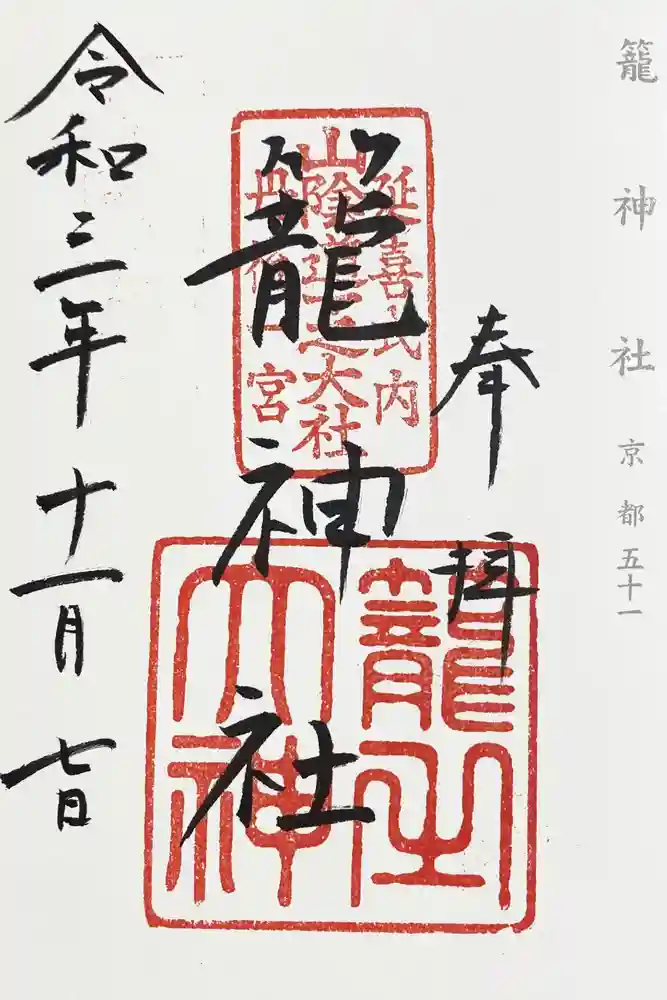 籠神社 京都五十一
奉拝
延喜式内
山陰道一之大社
丹後一宮
籠神社
籠之
大神
令和三年十一月七日